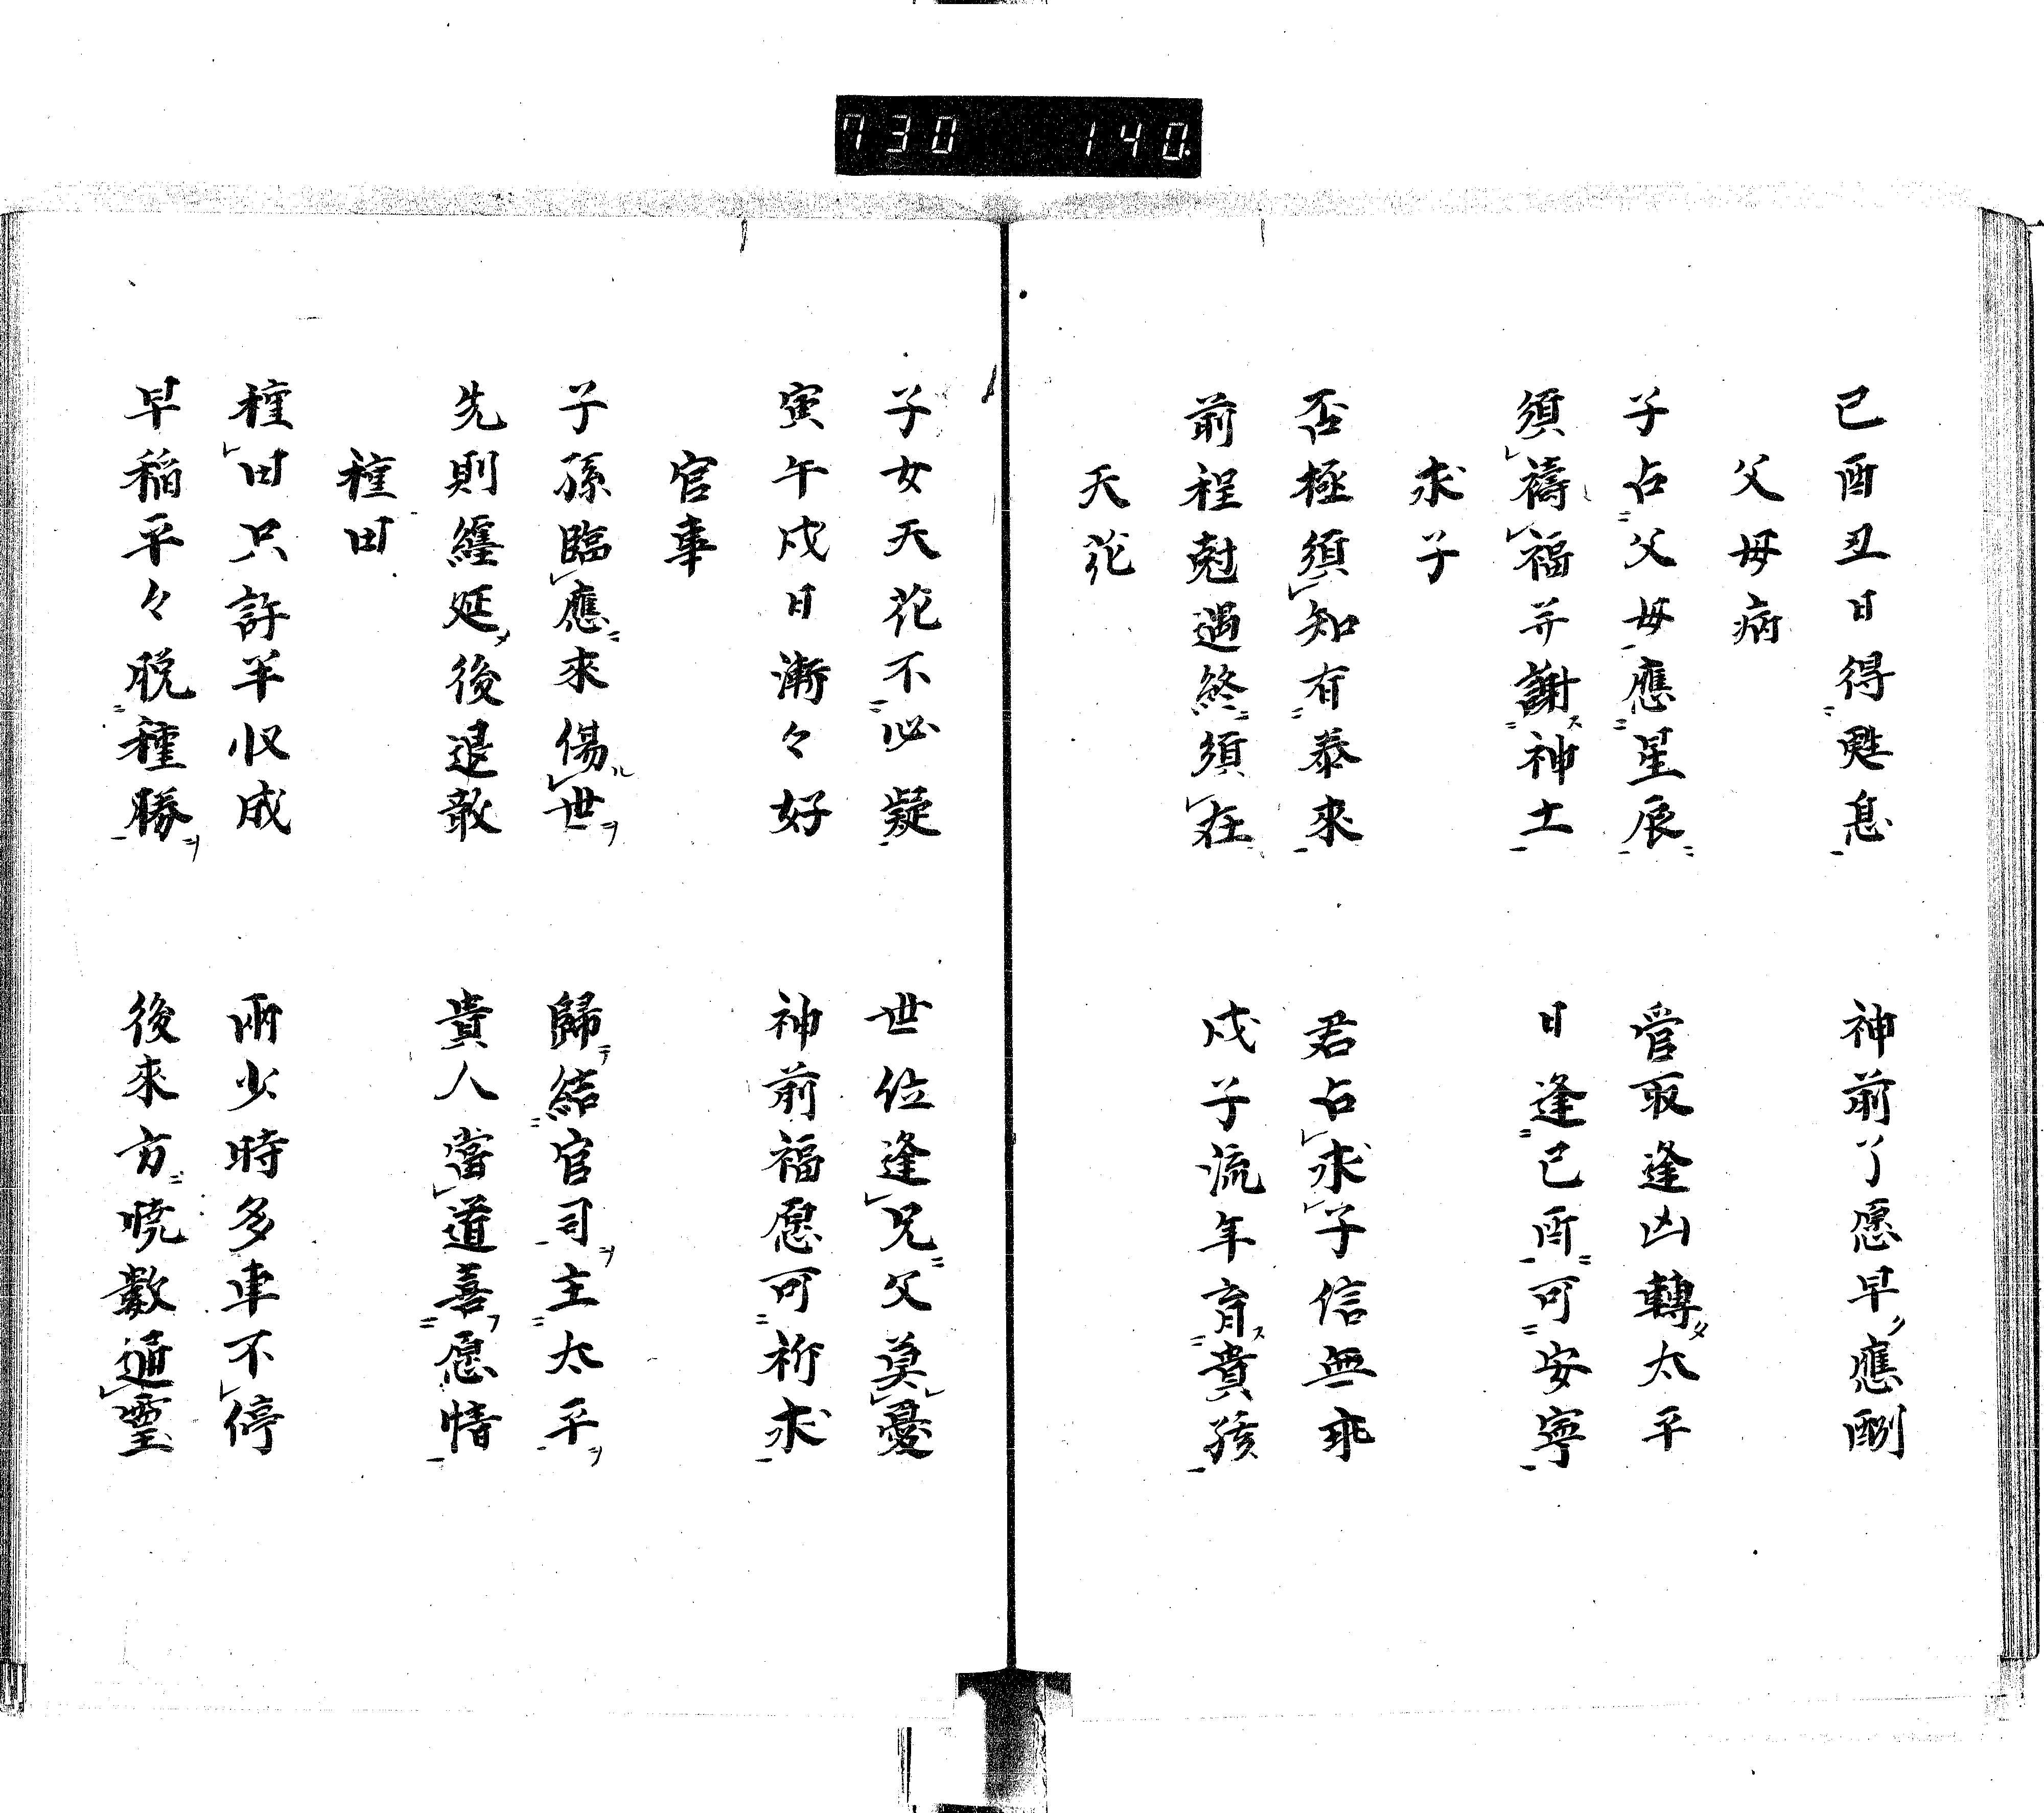 730 140
已酉丑日得甦息 神前了愿早應酬
父母病
子占父母應星辰 管取逢凶轉太平
須禱福并謝神土 日逢已酉可安寧
求子
否極須知有泰來 君占求子信無乖
前程尅過終須在 戌子流年育貴孩
天花
子女天花不必疑 世位逢兄父莫憂
寅午戌日漸々好 神前福愿可祈求
官事
子孫臨應來傷世 歸結官司主太平
先則纏延後退散 貴人當道喜愿情
種田
種田只許半収成 雨少時多車不停
早稲平々脱種勝 後來方暁數通靈